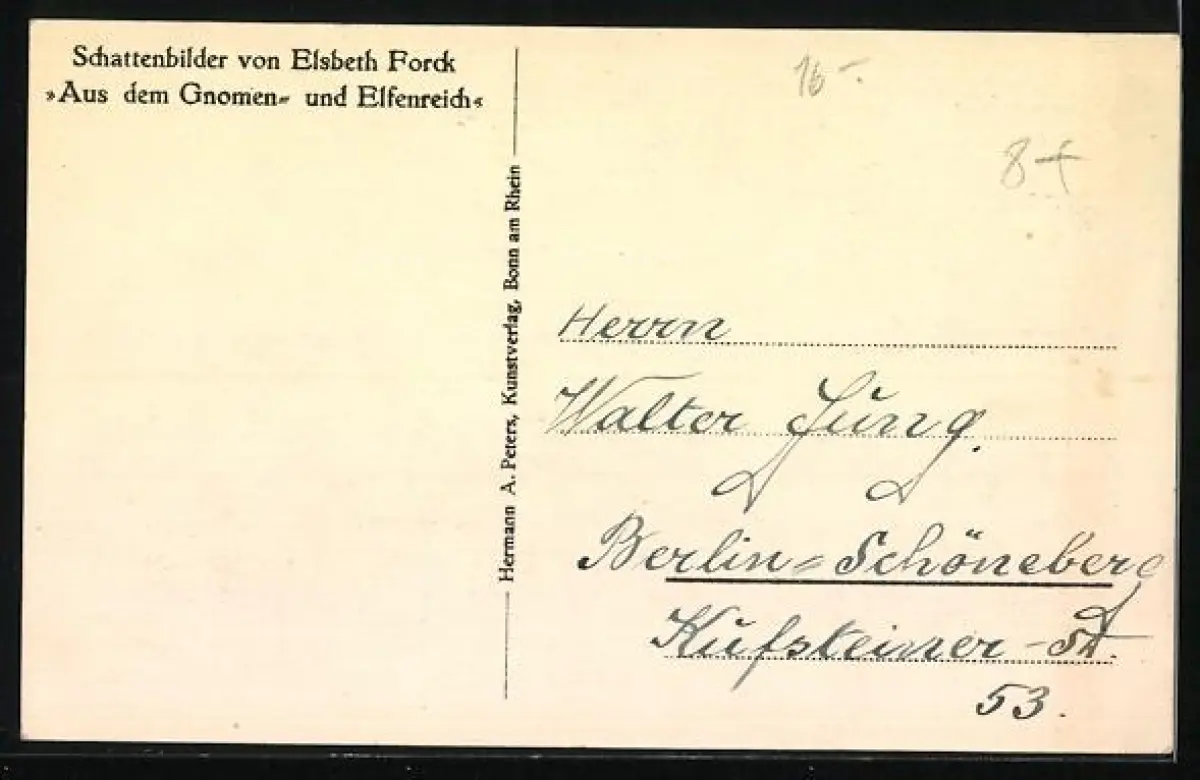 Schattenbilder von Elsbeth Forck
»Aus dem Gnomen- und Elfenreich«
Hermann A. Peters, Kunstverlag, Bonn am Rhein
16 -.
8+
Herrn
Walter Jung.
Berlin=Schöneberg
Kufsteiner-St.
53.